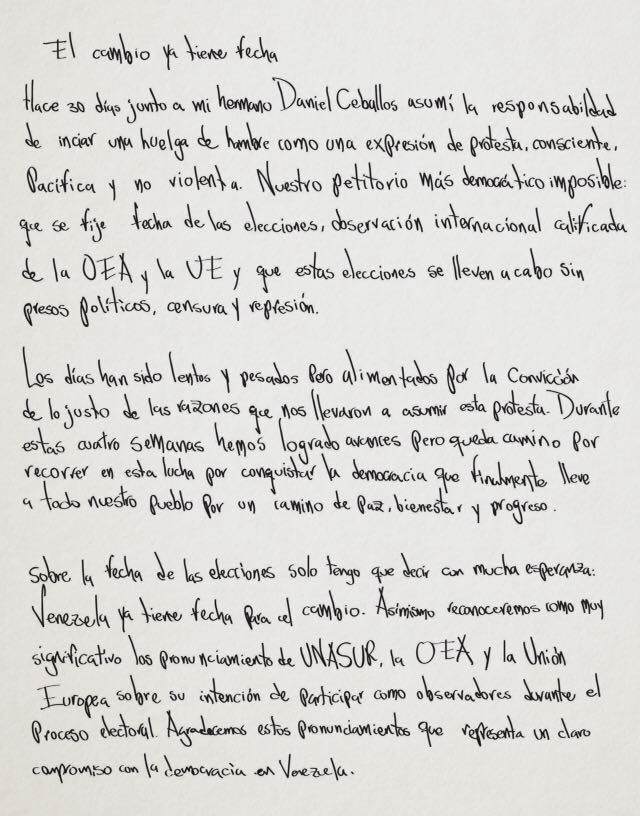 El cambio ya tiene fecha
Hace 30 días junto a mi hermano Daniel Ceballos asumí la responsabilidad
de inciar una huelga de hambre como una expresión de protesta, consciente,
Pacífica y no violenta. Nuestro petitorio más democrático imposible:
que se fije fecha de las elecciones, observación internacional calificada
de la OEA y la UE y que estas elecciones se lleven a cabo sin
presos políticos, censura y represión.
Los días han sido lentos y pesados pero alimentados por la convicción
de lo justo de las razones que nos llevaron a asumir esta protesta. Durante
estas cuatro semanas hemos logrado avances pero queda camino por
recorrer en esta lucha por conquistar la democracia que finalmente lleve
a todo nuestro pueblo por un camino de Paz, bienestar y progreso.
Sobre la fecha de las elecciones solo tengo que decir con mucha esperanza:
Venezuela ya tiene fecha para el cambio. Asimismo reconoceremos como muy
significativo los pronunciamiento de UNASUR, la OEA y la Unión
Europea sobre su intención de participar como observadores durante el
Proceso electoral. Agradecemos estos pronunciamientos que representa un claro
compromiso con la democracia en Venezuela.